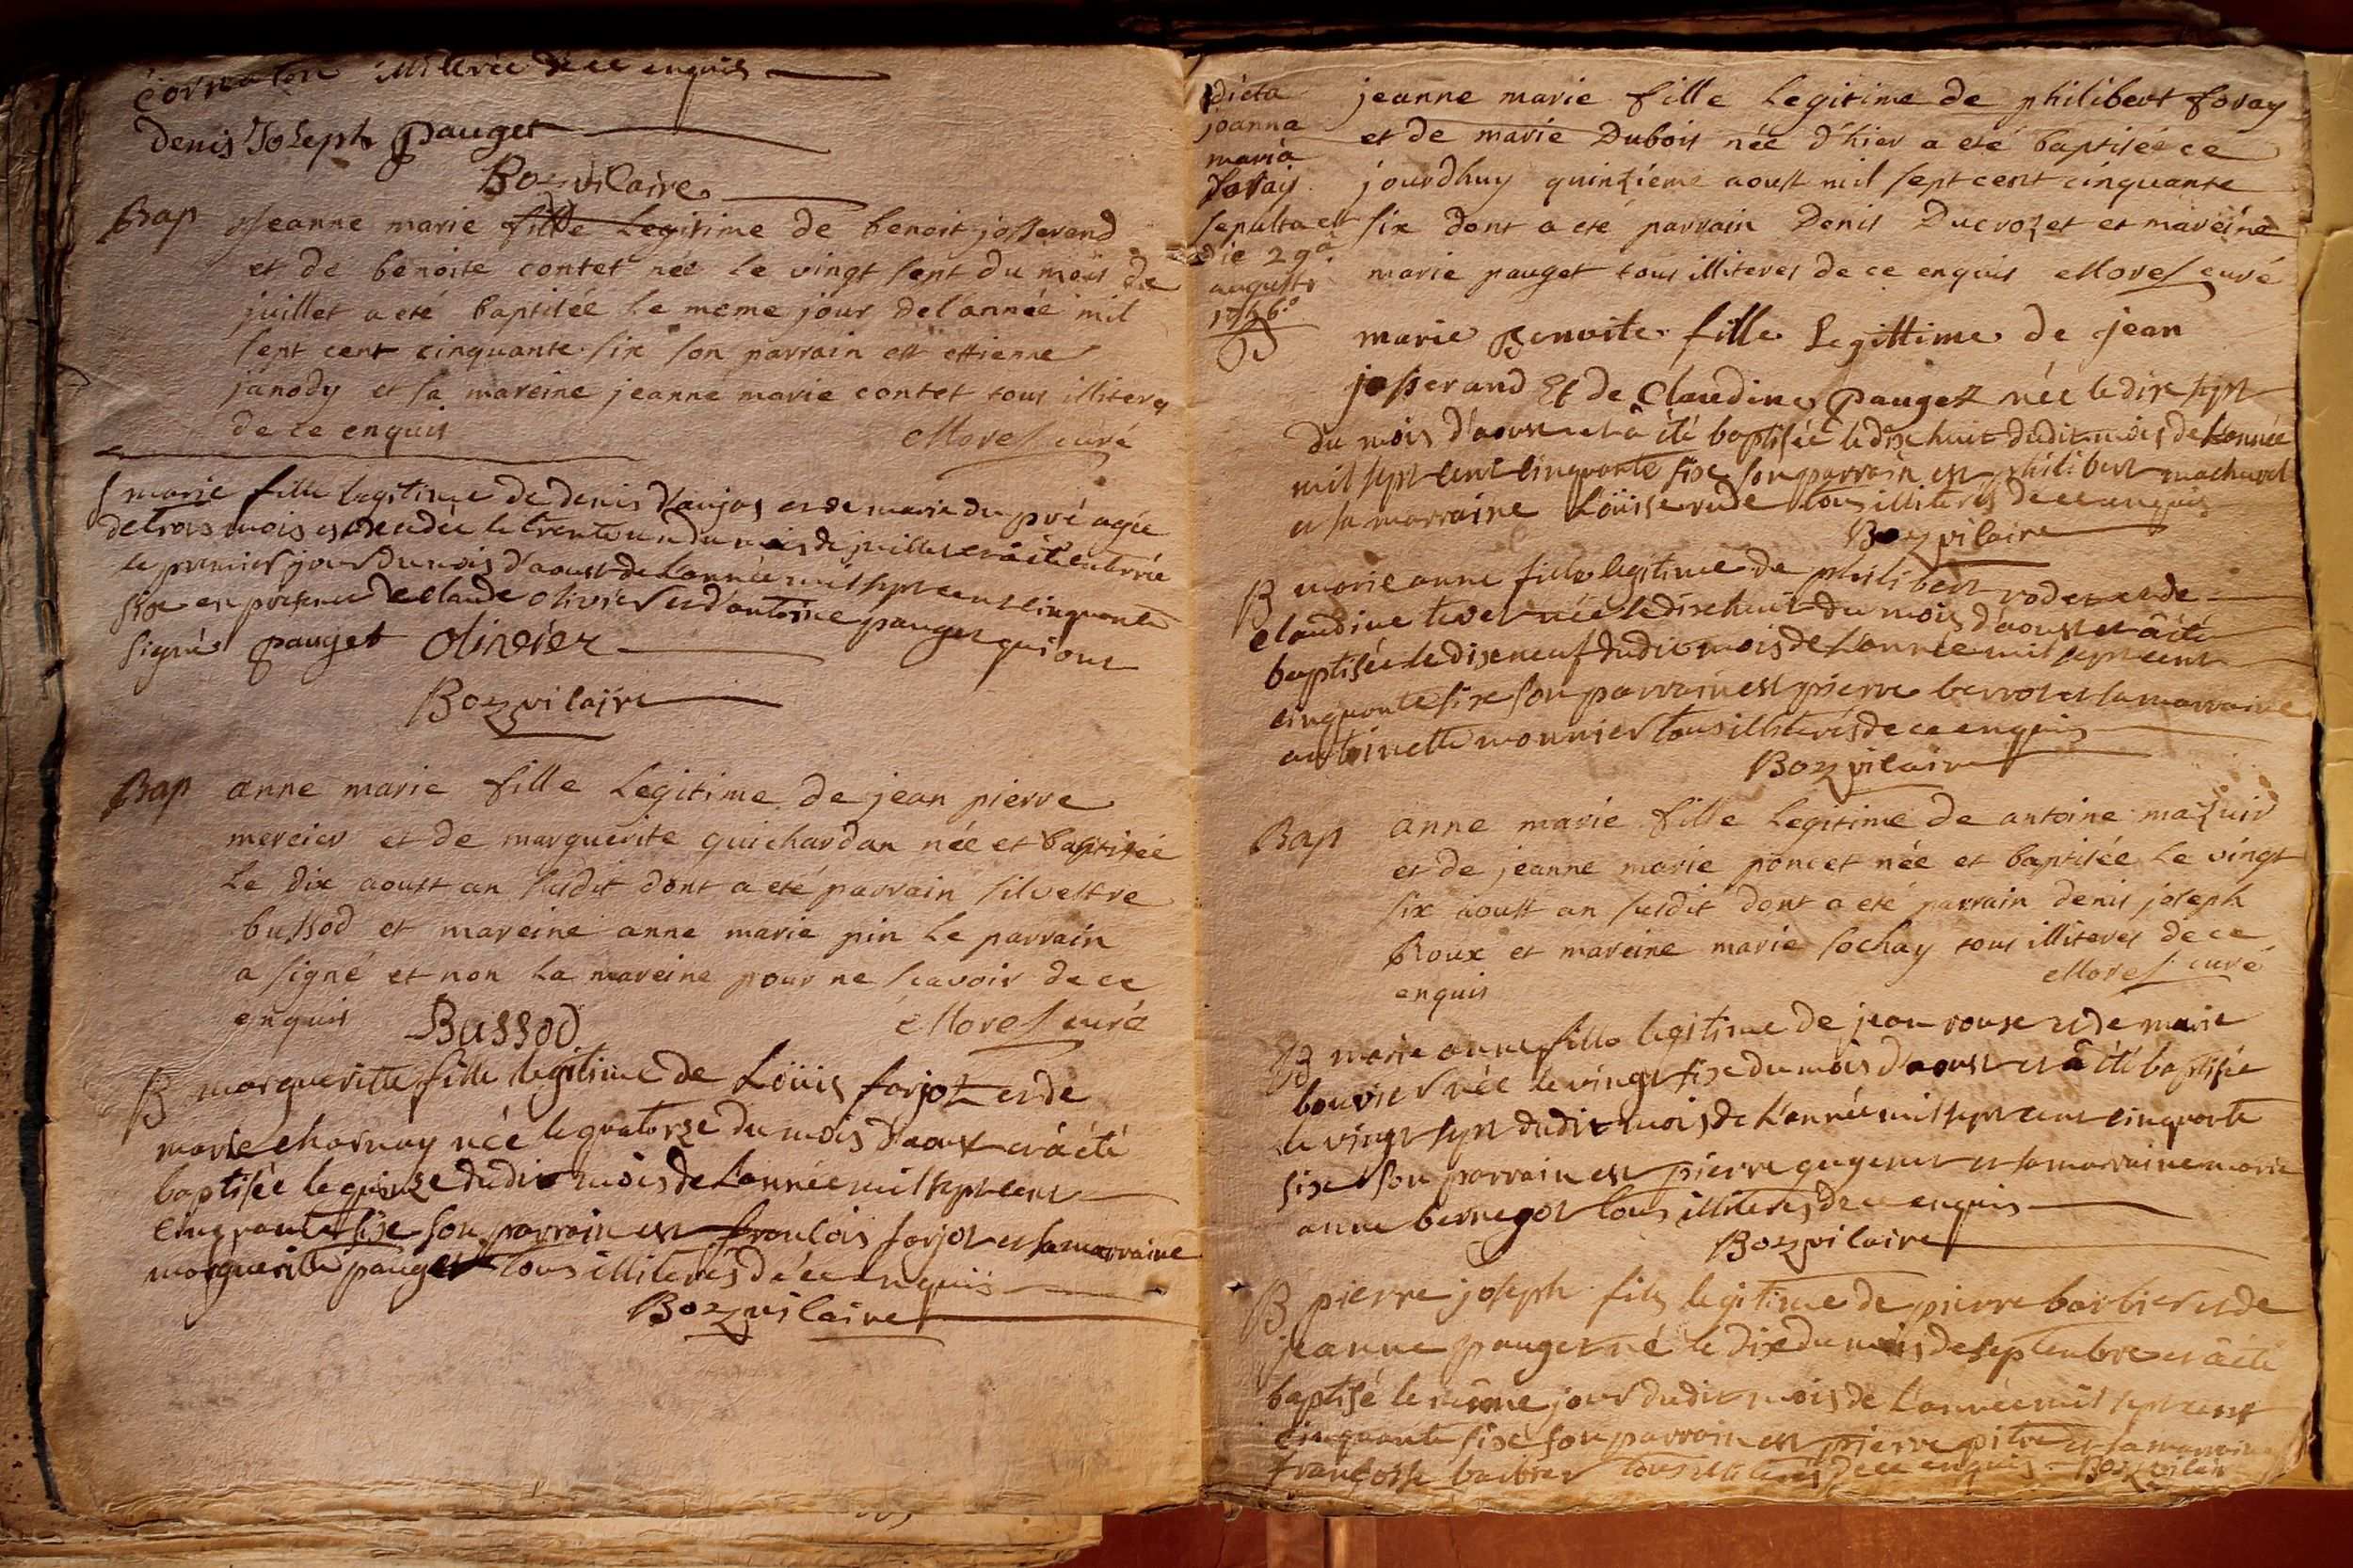 Cornaton illiterée de ce enquis
denis Joseph pauget
Boz vicaire
Bap Jeanne marie fille Legitime de benoit josserand
et de benoite contet neé le vingt sept du mois de
juillet a eté baptisée le meme jour de l'année mil
sept cent cinquante six son parrain est ettienne
janody et sa mareine jeanne marie contet tous illiteres
de ce enquis Morel curé
S marie fille legitime de denis Daujas et de marie du pré agée
de trois mois est décedée le trente un du mois de juillet et â été enterrée
le premier jour du mois d'aoust de L'année mil sept cent cinquante
six en presence de claude olivier et d'antoine pauget qui ont
signés pauget Olinvier
Boz vicaire
Bap anne marie fille Legitime de jean pierre
mercier et de marguerite guichardan née et baptisée
Le dix aoust an susdit dont a eté parrain silvestre
bussod et mareine anne marie pin Le parrain
a signé et non La mareine pour ne scavoir de ce
enquis Bussod Morel curé
B margueritte fille legitime de Loüis forjot et de
marie charnay née le quatorze du mois d'aoust et â été
baptisée le quinze dudit mois de L'année mil sept cent
cinquante six son parrain est francois forjot et sa marraine
marguerite pauget tous illiterés de ce enquis
Boz vicaire
dicta
joanna
maria
foray
sepulta est
die 29a
augusti
1756o
jeanne marie fille Legitime de philibert foray
et de marie Dubois née d'hier a eté baptisée ce
jourdhuy quinzième aoust mil sept cent cinquante
six dont a eté parrain Denis Ducrozet et mareine
marie pauget tous illiteres de ce enquis Morel curé
marie Benoite fille Legittime de jean
josserand Et de Claudine pauget née le dix sept
du mois d'aoust et â été baptisée le dix huit dudit mois de L'année
mil sept cent cinquante six son parrain est philibert machurel
et sa marraine Loüise rude tous illiterés de ce enquis
Boz vicaire
B marie anne fille legitime de philibert rodet et de
claudine tevet née le dix huit du mois d'aoust et â été
baptisée le dix neuf dudit mois de L'année mil sept cent
cinquante six son parrain est pierre berrot et sa marraine
antoinette monnier tous illiterés de ce enquis
Boz vicaire
Bap anne marie fille Legitime de antoine mazuir
et de jeanne marie poncet née et baptisée Le vingt
six aoust an susdit dont a eté parrain denis joseph
Roux et mareine marie sochay tous illiteres de ce
enquis Morel curé
B marie anne fille legitime de jean roux et de marie
bouvier née le vingt six du mois d'aoust et â été baptisée
le vingt sept dudit mois de L'année mil sept cent cinquante
six son parrain est pierre gugenet et sa marraine marie
anne bernegot tous illiterés de ce enquis
Boz vicaire
B pierre joseph fils legitime de pierre barbier et de
jeanne pauget né le dix du mois de septembre et â été
baptisé le même jour dudit mois de L'année mil sept cent
cinquante six son parrain est pierre pitre et sa marraine
francoise barbier tous illiterés de ce enquis Boz vicaire